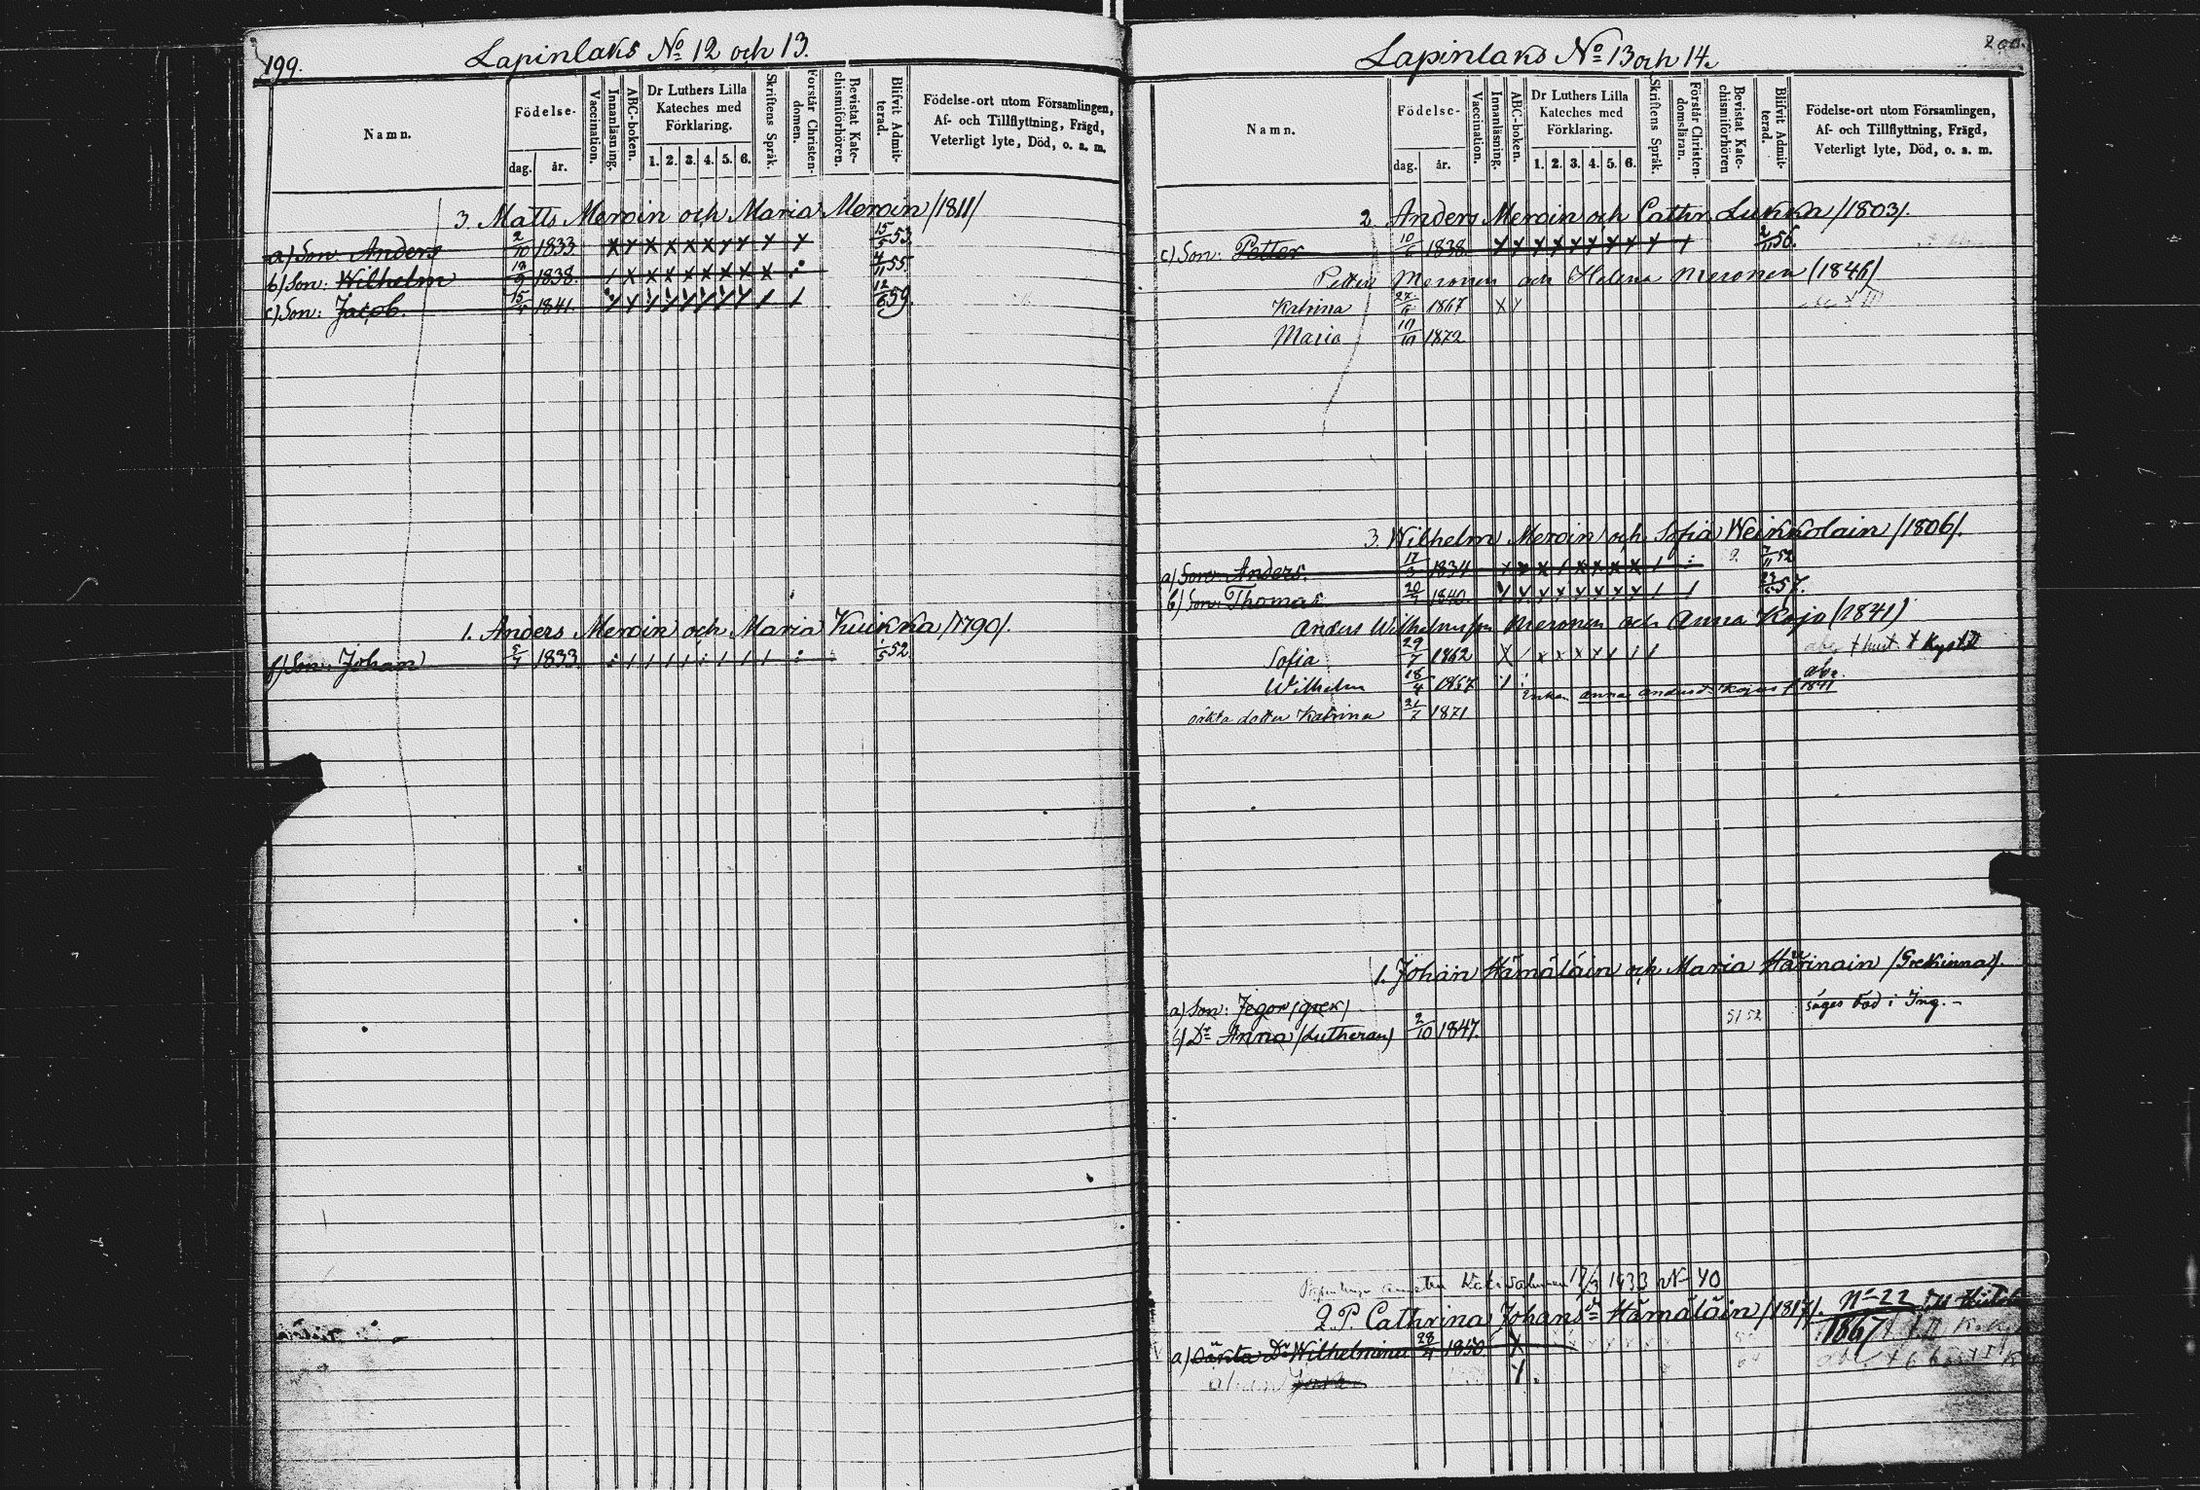 199.
Lapinlaks No 12 och 13.
Namn.
Födelse-
dag.
år.
Vaccination.
Innanläsning.
ABC-boken.
Dr Luthers Lilla
Kateches med
Förklaring.
1. 2. 3. 4. 5. 6.
Skriftens Språk.
Förstår Christen-
domen.
Bevistat Kate-
chismiförhören.
Blifvit Admit-
terad.
Födelse-ort utom Församlingen,
Af- och Tillflyttning, Frägd,
Veterligt lyte, Död, o. s. m.
3. Matts Meroin och Maria Meroin /1811/
a) Son: Anders 2/10 1833 x x x x x x y y y y 15/5 53.
b) Son: Wilhelm 1838. / x x x x x x x x 4/11 55.
c) Son: Jacob. 1841. 12/6 59.
1. Anders Meroin och Maria Kuikka /1790/.
f) Son: Johan 1833 1/5 52
200.
Lapinlaks No 13 och 14.
Namn.
Födelse-
dag.
år.
Vaccination.
Innanläsning.
ABC-boken.
Dr Luthers Lilla
Kateches med
Förklaring.
1. 2. 3. 4. 5. 6.
Skriftens Språk.
Förstår Christen-
domsläran.
Bevistat Kate-
chismiförhören
Blifvit Admit-
terad.
Födelse-ort utom Församlingen,
Af- och Tillflyttning, Frägd,
Veterligt lyte, Död, o. s. m.
2. Anders Meroin och Cathr. Lukka /1803/.
c) Son: Petter 1838. 2/11 56.
Petter Meronen och Helena Meronen (1846)
Katrina 1867 x y
Maria 10/10 1872
3. Wilhelm Meroin och Sofia Weikkolain /1806/.
a) Son Anders. 17/3 1834 52
b) Son: Thomas 1840. 57.
Anders Wilhelmsson Meronen och Anna Kojo (1841)
Sofia 29/7 1862
Wilhelm 18/4 1867
Enkan Anna Andersd. Kojo 1841
oäkta dotter Katrina 21/7 1871
1. Johan Hämäläin och Maria Härinain /Grekinna/.
a) Son: Jegor (grek) säges död i Ing. -
b) Dr Anna (Lutheran) 2/10 1847. 51 52
1933 No 40
2. P. Cathrina Johansdr Hämäläin /1817/. No 22 till Hiitola
1867
a) oäkta Dr Wilhelmina 28/4 1850